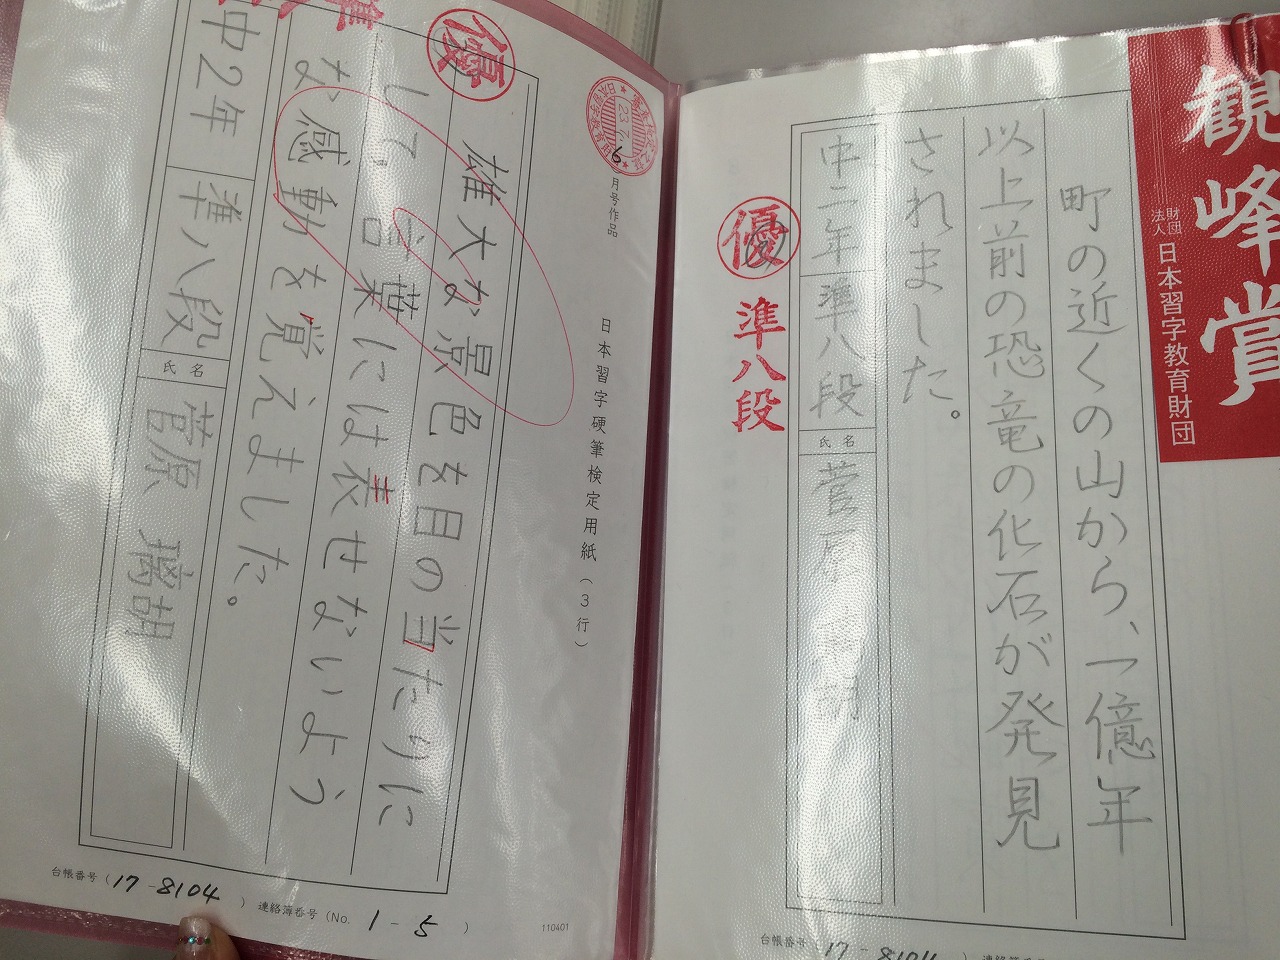 観峰賞
財団法人 日本習字教育財団
町の近くの山から、一億年
以上前の恐竜の化石が発見
されました。
中二年 準八段 氏名 菅原
優
準八段
台帳番号(17-8104)
日本習字硬筆検定用紙(3行)
6月号作品
優
準
雄大な景色を目の当たりに
して、言葉には表せないよう
な感動を覚えました。
中2年 準八段 氏名 菅原 璃胡
台帳番号(17-8104) 連絡簿番号(No. 1-5)
110401